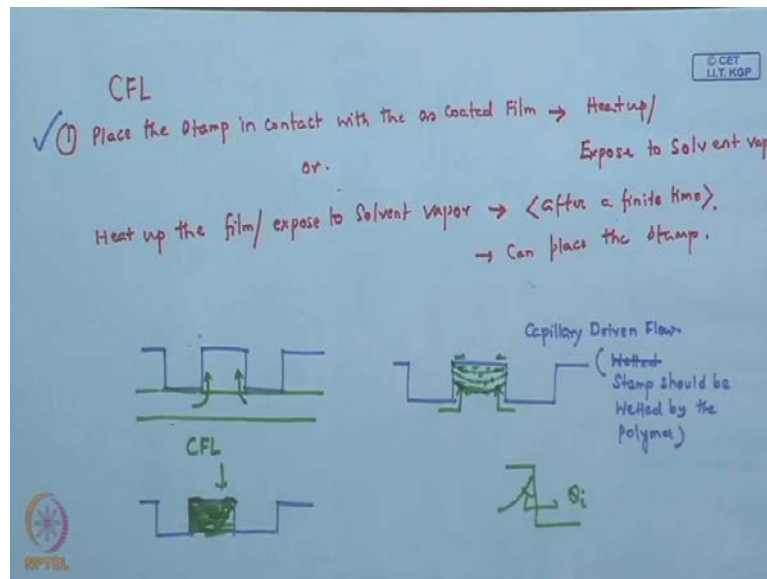 © CET
I.I.T. KGP
CFL
① Place the stamp in contact with the as coated Film → Heat up/
Expose to Solvent vap
or.
Heat up the film/ expose to Solvent vapor → <after a finite time>.
→ Can place the stamp.
Capillary Driven Flow
(Wetted
Stamp should be
Wetted by the
Polymer)
CFL
θi
NPTEL